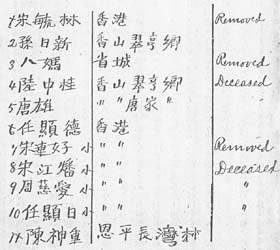 1 朱毓林 香港 Removed
2 孫日新 香山翠亨鄉
3 八媽 省城 Removed
4 陸中桂 香山翠亨鄉 Deceased
5 唐雄 " " 唐家 "
6 任顯德 香港
7 宋連好 小 " " Removed
8 宋江皤 小 " " Deceased
9 周慈愛 小 " " "
10 任顯日 小 " " "
11 陳神重 恩平長灣村